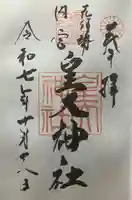 奉拝
元伊勢
内宮
皇大神社
令和七年十月十八日